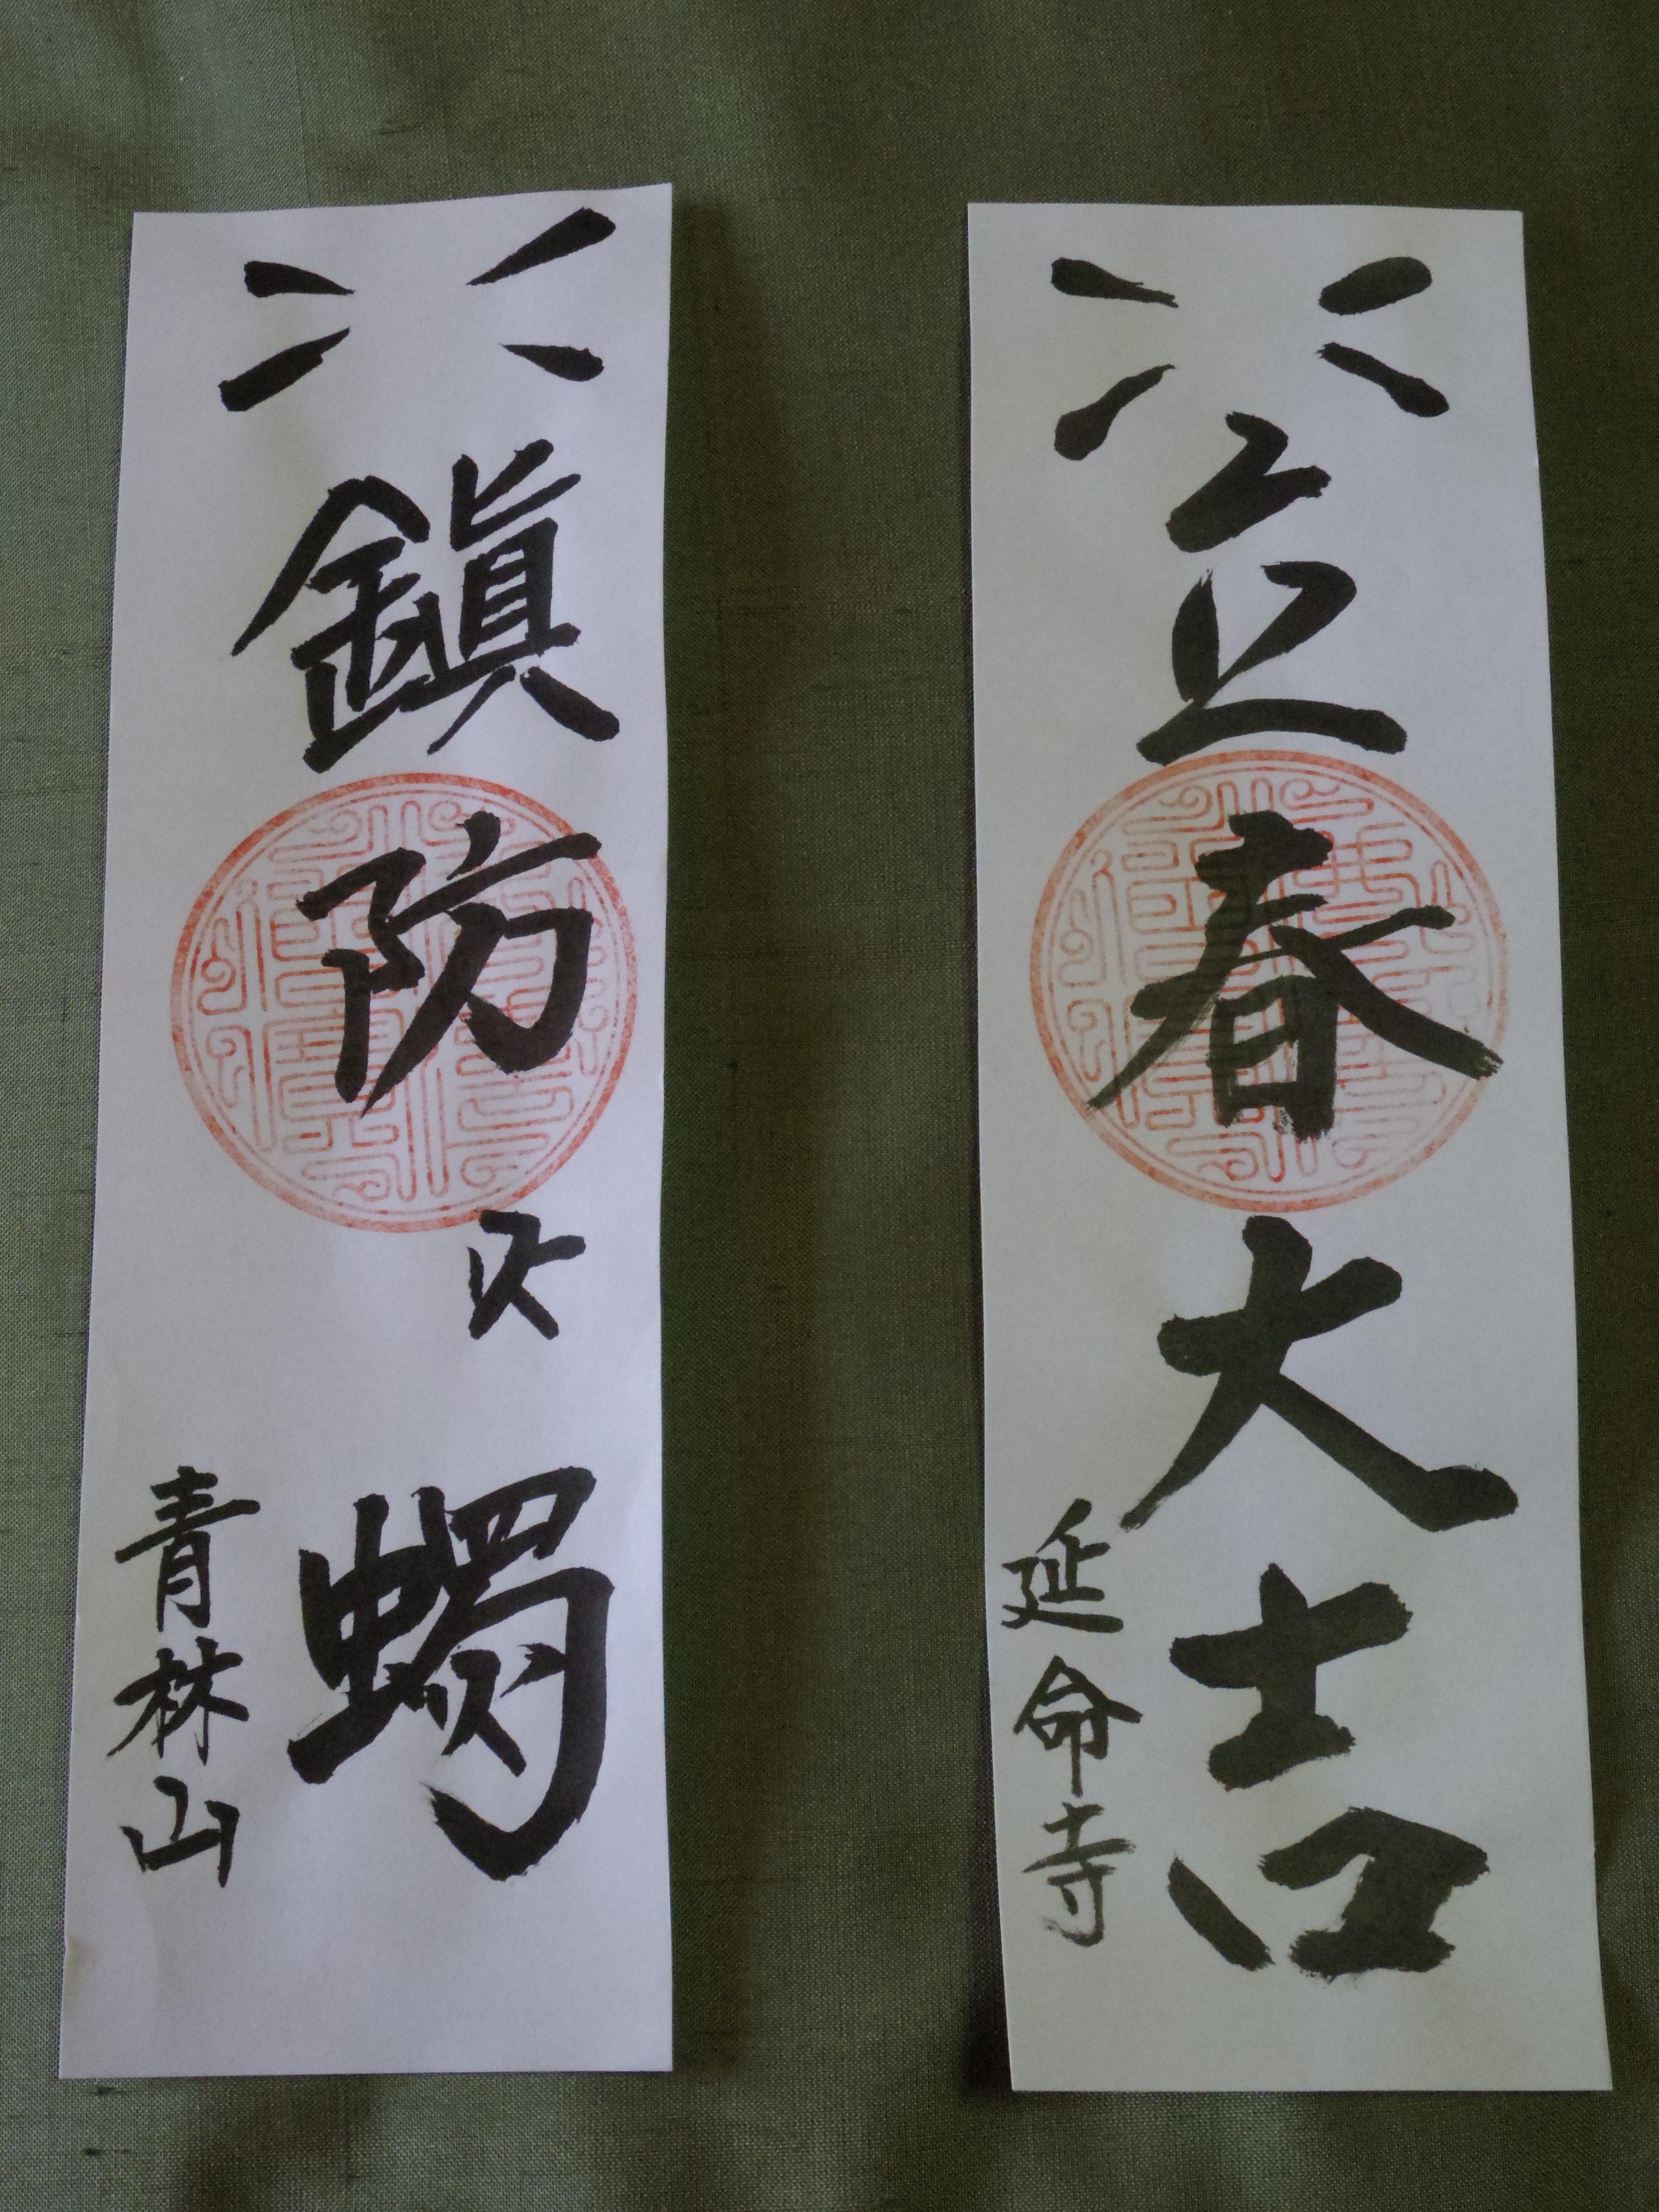 立春大吉
延命寺
鎭防火燭
青林山